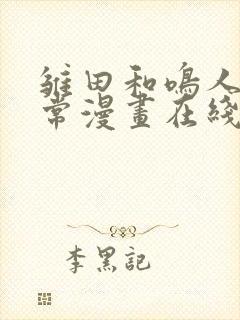 雏田和鳴人
常漫畫在綫
李黑記